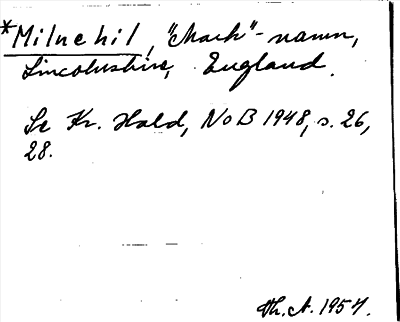 *Milnehil, "Mark"-namn,
Lincolnshire, England.
Se Kr. Hald, NoB 1948, s. 26,
28.
Th. A. 1957.